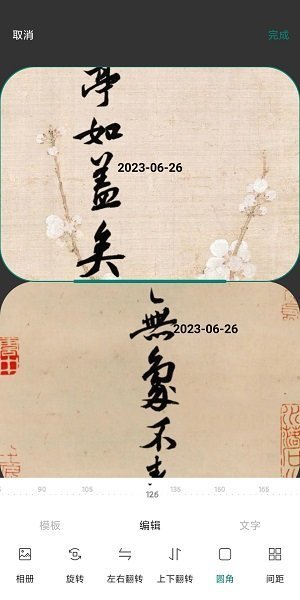 取消
完成
亭如盖矣
2023-06-26
無象不
2023-06-26
90 105 126 135 150 165
模板 编辑 文字
相册 旋转 左右翻转 上下翻转 圆角 间距